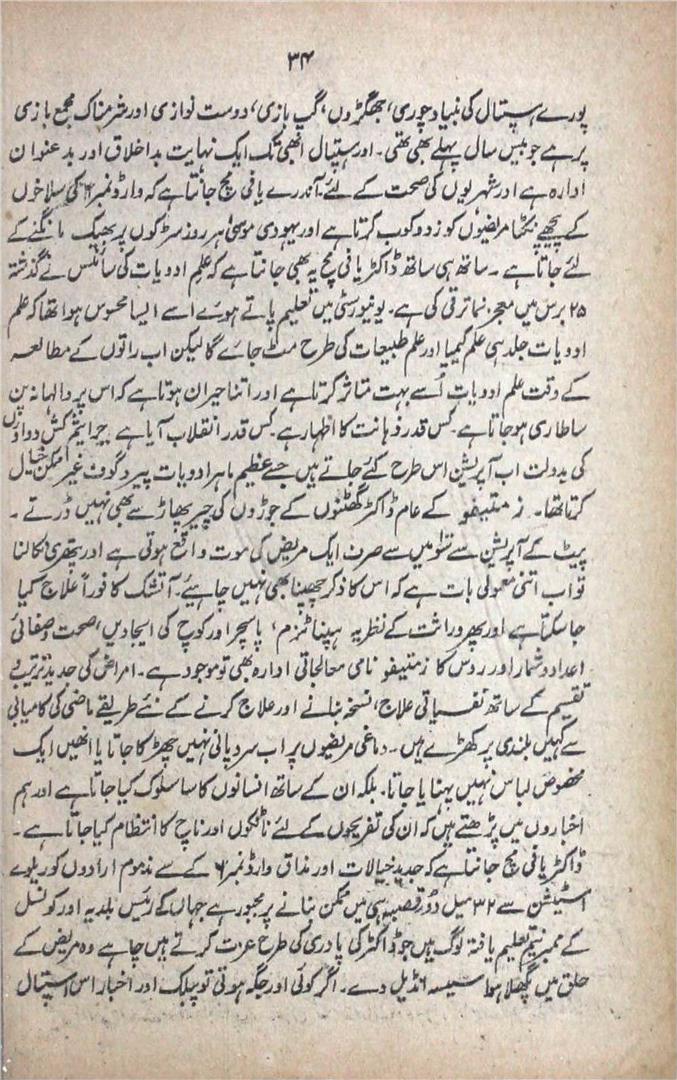 ۳۴
پورے ہسپتال کی بنیاد چوری، جھگڑوں، گپ بازی، دوست نوازی اور شرمناک مجمع بازی
پر ہے جو بیس سال پہلے بھی تھی۔ اور ہسپتال ابھی تک ایک نہایت بداخلاق اور بدعنوان
ادارہ ہے اور شہریوں کی صحت کے لئے۔ آندرے یافی مچ جانتا ہے کہ وارڈ نمبر ۶ کی سلاخوں
کے پیچھے نکیتا مریضوں کو زدوکوب کرتا ہے اور یہودی موسیٰ ہر روز سڑکوں پر بھیک مانگنے کے
لئے جاتا ہے۔ ساتھ ہی ساتھ ڈاکٹر یافی مچ یہ بھی جانتا ہے کہ علم ادویات کی سائنس نے گذشتہ
۲۵ برس میں معجز نما ترقی کی ہے۔ یونیورسٹی میں تعلیم پاتے ہوئے اسے ایسا محسوس ہوا تھا کہ علم
ادویات جلد ہی علم کیمیا اور علم طبیعات کی طرح مٹ جائے گا لیکن اب راتوں کے مطالعہ
کے وقت علم ادویات اُسے بہت متاثر کرتا ہے اور اتنا حیران ہوتا ہے کہ اس پر والہانہ پن
سا طاری ہو جاتا ہے۔ کس قدر ذہانت کا اظہار ہے۔ کس قدر انقلاب آیا ہے جراثیم کش دواؤں
کی بدولت اب آپریشن اس طرح کئے جاتے ہیں جسے عظیم ماہر ادویات پیروگوف غیر ممکن خیال
کرتا تھا۔ زمتیفو کے عام ڈاکٹر گھٹنوں کے جوڑوں کی چیر پھاڑ سے بھی نہیں ڈرتے۔
پیٹ کے آپریشن سے سو میں سے صرف ایک مریض کی موت واقع ہوتی ہے اور پتھری نکالنا
تو اب اتنی معمولی بات ہے کہ اس کا ذکر چھپنا بھی نہیں چاہیئے۔ آتشک کا فوراً علاج کیا
جا سکتا ہے اور پھر وراثت کے نظریہ ہپناٹزم، پاسچر اور کوچ کی ایجادیں، صحت و صفائی
اعداد و شمار اور روس کا زمتیفو نامی معالجاتی ادارہ بھی تو موجود ہے۔ امراض کی جدید ترتیب و
تقسیم کے ساتھ نفسیاتی علاج، نسخہ بنانے اور علاج کرنے کے نئے طریقے ماضی کی کامیابی
سے کہیں بلندی پر کھڑے ہیں۔ دماغی مریضوں پر اب سرد پانی نہیں چھڑکا جاتا یا انھیں ایک
مخصوص لباس نہیں پہنایا جاتا۔ بلکہ ان کے ساتھ انسانوں کا سا سلوک کیا جاتا ہے اور ہم
اخباروں میں پڑھتے ہیں کہ ان کی تفریحوں کے لئے ناٹکوں اور ناچ کا انتظام کیا جاتا ہے۔
ڈاکٹر یافی مچ جانتا ہے کہ جدید خیالات اور مذاق وارڈ نمبر ۶ کے سے مذموم ارادوں کو ریلوے
اسٹیشن سے ۳۲ میل دور قصبہ ہی میں ممکن بنانے پر مجبور ہے جہاں کے رئیس بلدیہ اور کونسل
کے ممبر نیم تعلیم یافتہ لوگ ہیں جو ڈاکٹر کی پادری کی طرح عزت کرتے ہیں چاہے وہ مریض کے
حلق میں پگھلا ہوا سیسہ انڈیل دے۔ اگر کوئی اور جگہ ہوتی تو پبلک اور اخبار اس ہسپتال